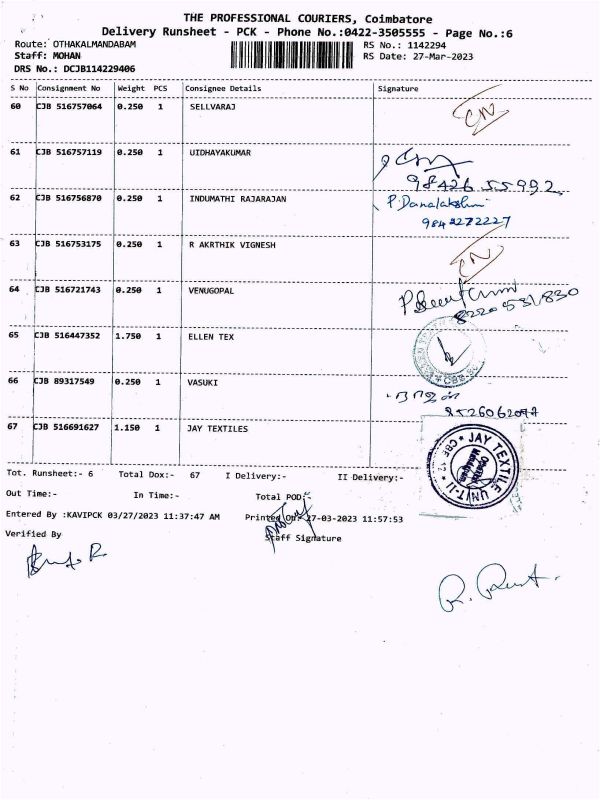 THE PROFESSIONAL COURIERS, Coimbatore
Delivery Runsheet - PCK - Phone No.:0422-3505555 - Page No.:6
Route: OTHAKALMANDABAM RS No.: 1142294
Staff: MOHAN RS Date: 27-Mar-2023
DRS No.: DCJB114229406
S No Consignment No Weight PCS Consignee Details Signature
60 CJB 516757064 0.250 1 SELLVARAJ CN
61 CJB 516757119 0.250 1 UIDHAYAKUMAR
98426 55992
62 CJB 516756870 0.250 1 INDUMATHI RAJARAJAN P. Danalakshmi
9842272227
63 CJB 516753175 0.250 1 R AKRTHIK VIGNESH CN
64 CJB 516721743 0.250 1 VENUGOPAL
8220531830
65 CJB 516447352 1.750 1 ELLEN TEX
66 CJB 89317549 0.250 1 VASUKI
67 CJB 516691627 1.150 1 JAY TEXTILES JAY TEXTILE UNIT-II CBE-12
Tot. Runsheet:- 6 Total Dox:- 67 I Delivery:- II Delivery:-
Out Time:- In Time:- Total POD:-
Entered By :KAVIPCK 03/27/2023 11:37:47 AM Printed On: 27-03-2023 11:57:53
Verified By Staff Signature